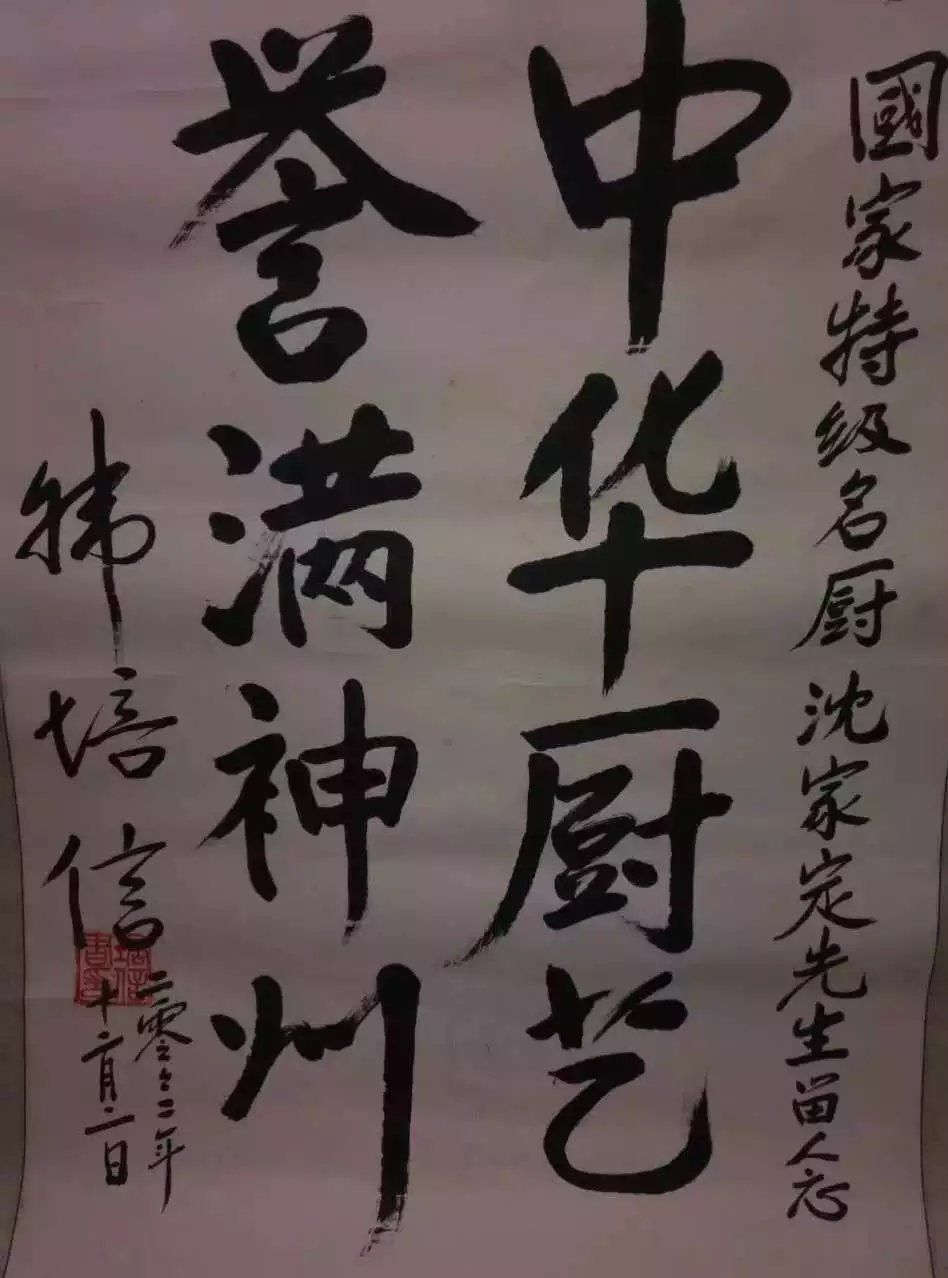 國家特级名厨沈家定先生留念
中华厨艺
誉满神州
韩培信
二零零二年
十二月二日